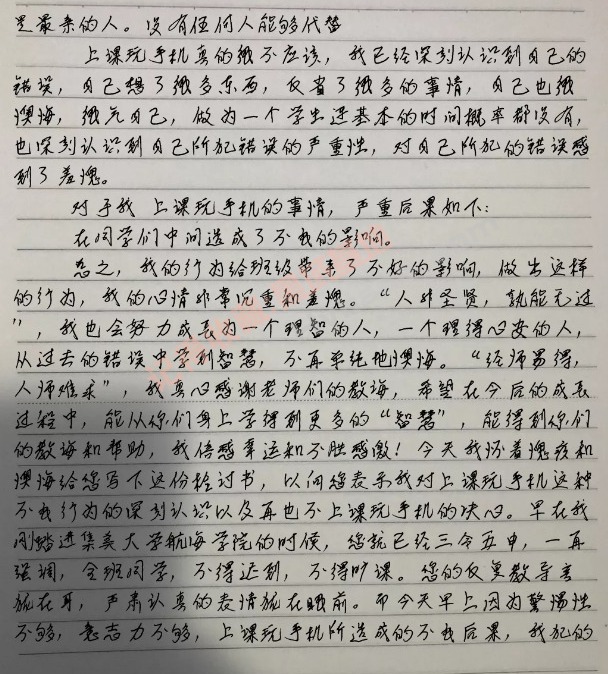 是最亲的人。没有任何人能够代替
上课玩手机真的很不应该，我已经深刻认识到自己的
错误，自己想了很多东西，反省了很多的事情，自己也很
懊悔，很气自己，做为一个学生连基本的时间概率都没有，
也深刻认识到自己所犯错误的严重性，对自己所犯的错误感
到了羞愧。
对于我 上课玩手机的事情，严重后果如下：
在同学们中间造成了不良的影响。
总之，我的行为给班级带来了不好的影响，做出这样
的行为，我的心情非常沉重和羞愧。“人非圣贤，孰能无过
”，我也会努力成长为一个理智的人，一个理得心安的人，
从过去的错误中学到智慧，不再单纯地懊悔。“经师易得，
人师难求”，我真心感谢老师们的教诲，希望在今后的成长
过程中，能从你们身上学得到更多的“智慧”，能得到你们
的教诲和帮助，我倍感幸运和不胜感激！今天我怀着愧疚和
懊悔给您写下这份检讨书，以向您表示我对上课玩手机这种
不良行为的深刻认识以及再也不上课玩手机的决心。早在我
刚踏进集美大学航海学院的时候，您就已经三令五申，一再
强调，全班同学，不得迟到，不得旷课。您的反复教导言
犹在耳，严肃认真的表情犹在眼前。而今天早上因为警惕性
不够，意志力不够，上课玩手机所造成的不良后果，我犯的